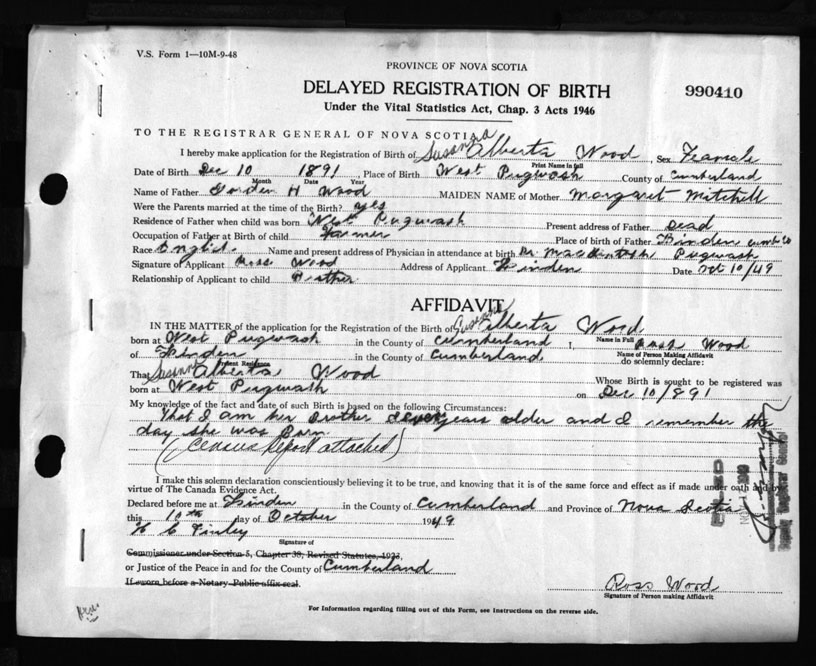 V.S. Form 1—10M-9-48
PROVINCE OF NOVA SCOTIA
DELAYED REGISTRATION OF BIRTH
990410
Under the Vital Statistics Act, Chap. 3 Acts 1946
TO THE REGISTRAR GENERAL OF NOVA SCOTIA
I hereby make application for the Registration of Birth of Susanna Alberta Wood, Sex Feamale
Print Name in full
Date of Birth Dec 10 1891, Place of Birth West Pugwash County of Cumberland
Month Date Year
Name of Father Gorden H Wood MAIDEN NAME of Mother Margaret Mitchell
Were the Parents married at the time of the Birth? yes
Residence of Father when child was born West Pugwash Present address of Father Dead
Occupation of Father at Birth of child Farmer Place of birth of Father Linden Cumb Co
Race English. Name and present address of Physician in attendance at birth Dr. MacKintosh Pugwash
Signature of Applicant Ross Wood Address of Applicant Linden Date Oct 10/49
Relationship of Applicant to child Brother
AFFIDAVIT
IN THE MATTER of the application for the Registration of the Birth of Susanna Alberta Wood
Name in Full
born at West Pugwash in the County of Cumberland I, Ross Wood
Name of Person Making Affidavit
of Linden in the County of Cumberland do solemnly declare:
Present Residence
That Susanna Alberta Wood Whose Birth is sought to be registered was
born at West Pugwash on Dec 10/891
My knowledge of the fact and date of such Birth is based on the following Circumstances:
That I am her brother years older and I remember the
day she was born
(Census Report attached)
I make this solemn declaration conscientiously believing it to be true, and knowing that it is of the same force and effect as if made under oath and by
virtue of The Canada Evidence Act.
Declared before me at Linden in the County of Cumberland and Province of Nova Scotia
this 10th day of October 1949
H C Finley
Signature of
Commissioner under Section 5, Chapter 38, Revised Statutes, 1923,
or Justice of the Peace in and for the County of Cumberland
If sworn before a Notary Public affix seal.
Ross Wood
Signature of Person making Affidavit
For Information regarding filling out of this Form, see Instructions on the reverse side.
Deputy Registrar General